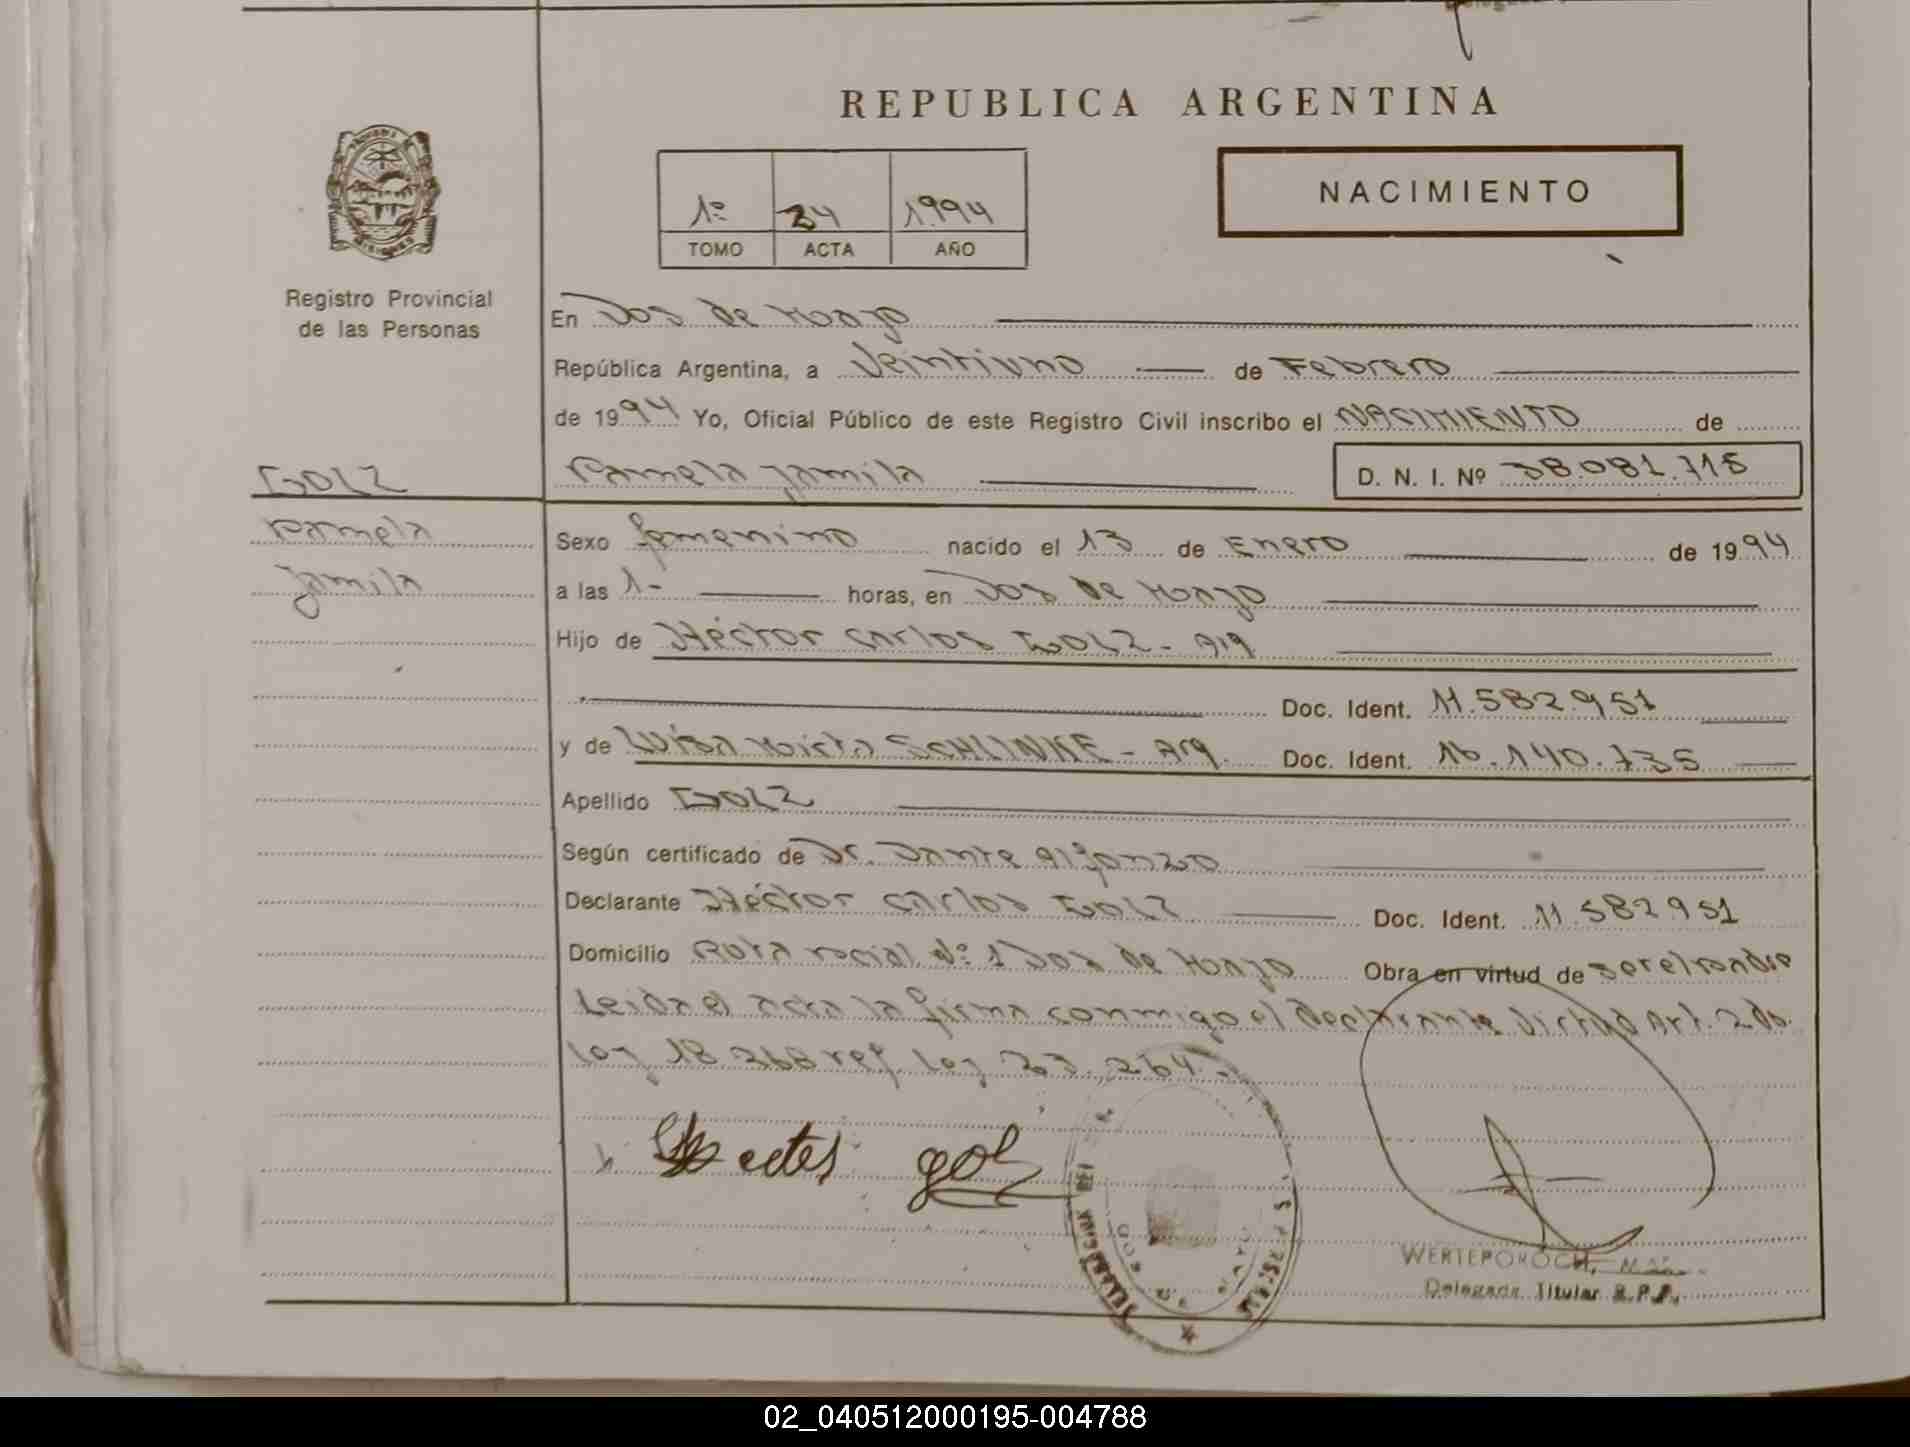 REPUBLICA ARGENTINA
NACIMIENTO
1º 34 1994
TOMO ACTA AÑO
Registro Provincial
de las Personas
En Dos de Mayo
República Argentina, a Veintiuno de Febrero
de 1994 Yo, Oficial Público de este Registro Civil inscribo el NACIMIENTO de
GOLZ
Pamela Yamila D. N. I. Nº 38.081.715
Pamela
Yamila
Sexo femenino nacido el 13 de Enero de 1994
a las 1- horas, en Dos de Mayo
Hijo de Héctor Carlos GOLZ - Arg
Doc. Ident. 11.582.951
y de Luisa SCHLINKE - Arg. Doc. Ident. 16.140.735
Apellido GOLZ
Según certificado de Dr. Dante Alfonzo
Declarante Héctor Carlos GOLZ Doc. Ident. 11.582.951
Domicilio Nº 1 Dos de Mayo Obra en virtud de
Leida el acta la firma conmigo el declarante Virtud Art. 2do.
Ley 18.368 ref. Ley 23.264.-
Hector golz
DOS DE MAYO
WERTEPOROCH,
Delegada Titular R.P.P.
02_040512000195-004788